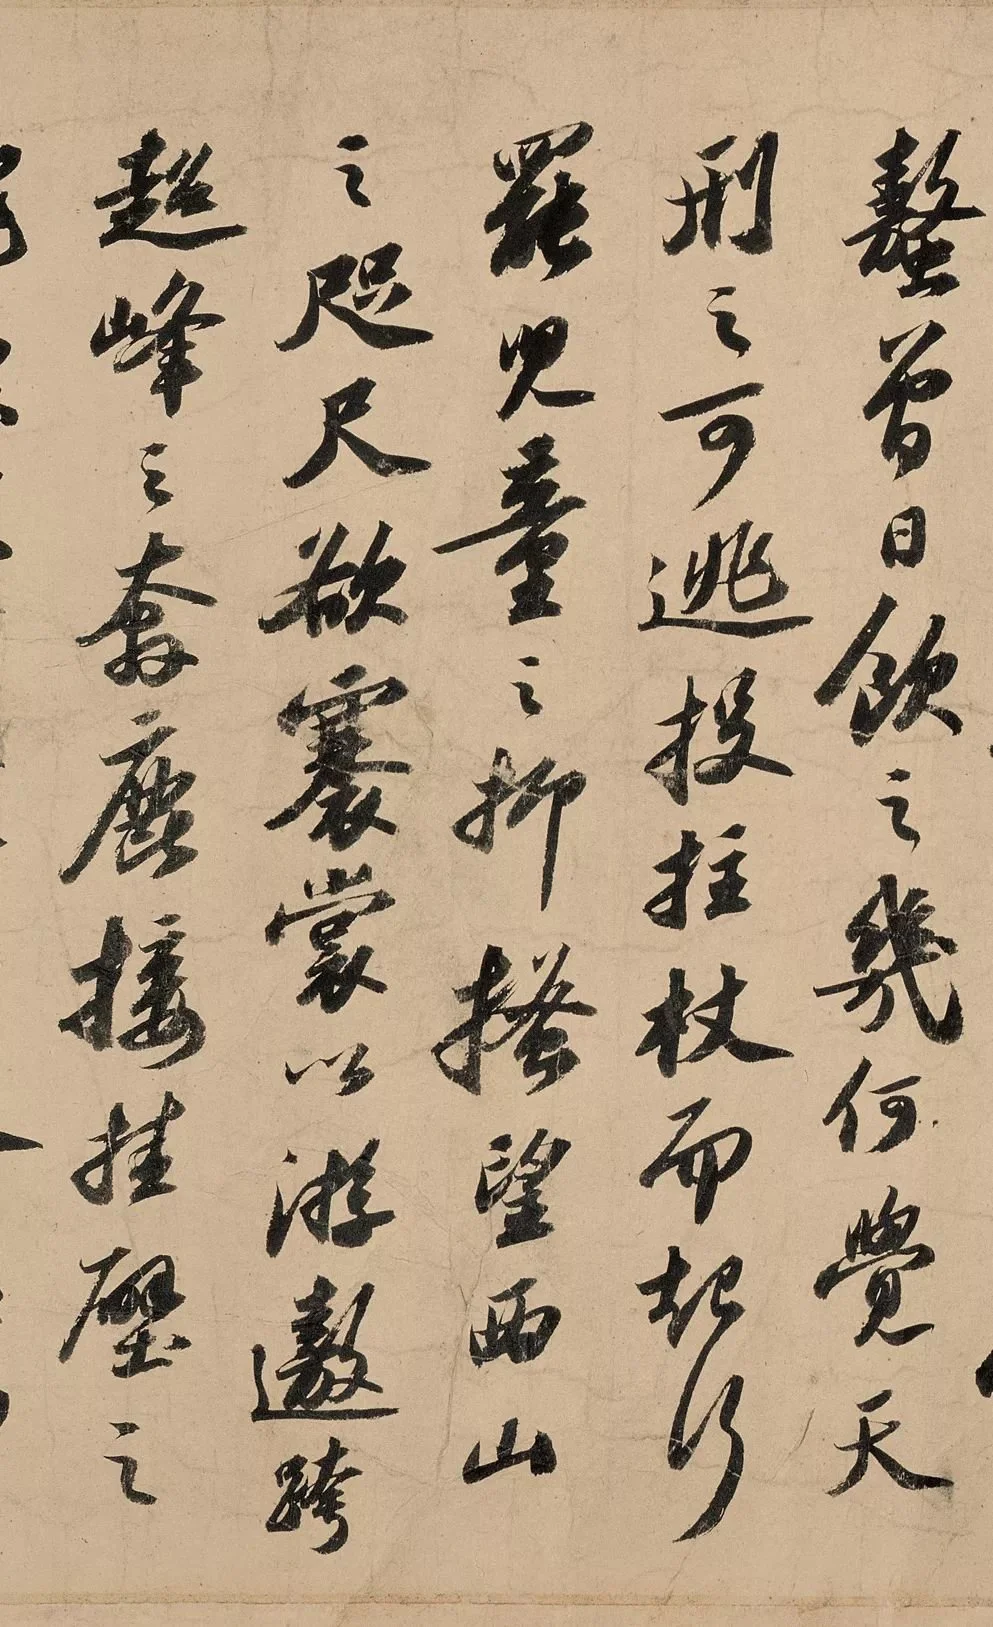 螯曾日飲之幾何覺天
刑之可逃投拄杖而起行
罷兒童之抑搔望西山
之咫尺欲褰裳以游遨跨
超峰之奔鹿接挂壁之